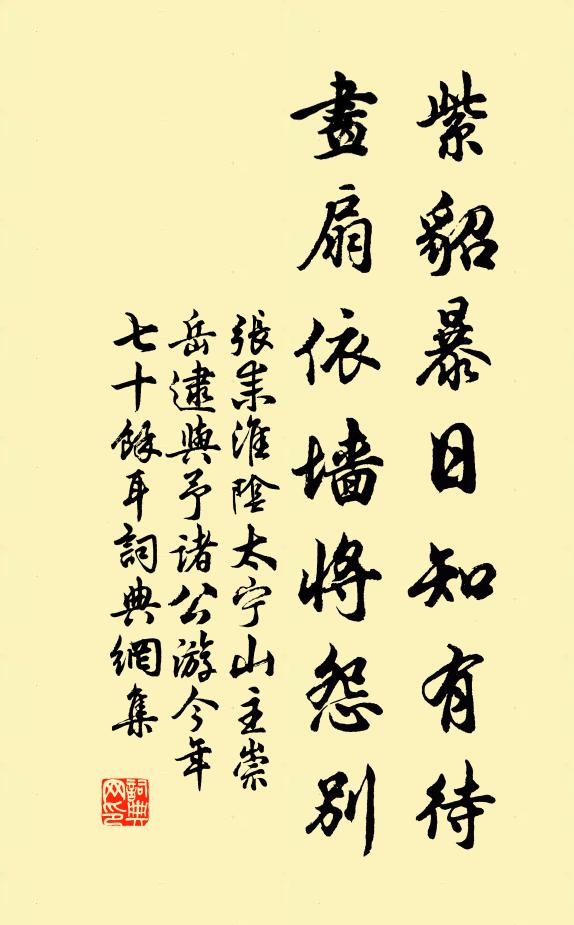 紫貂暴日知有待
畫扇依墙將怨別
張耒淮陰太宁山主崇
岳逮與予诸公游今年
七十餘耳詞典網集
詞典网印